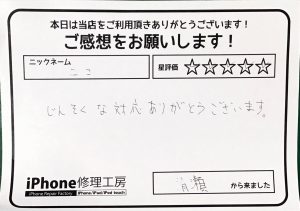 本日は当店をご利用頂きありがとうございます!
ご感想をお願いします!
ニックネーム
ニコ
星評価 ☆☆☆☆☆
じんそくな対応ありがとうございます。
iPhone修理工房
iPhone Repair Factory iPhone/iPad/iPod touch
清瀬 から来ました